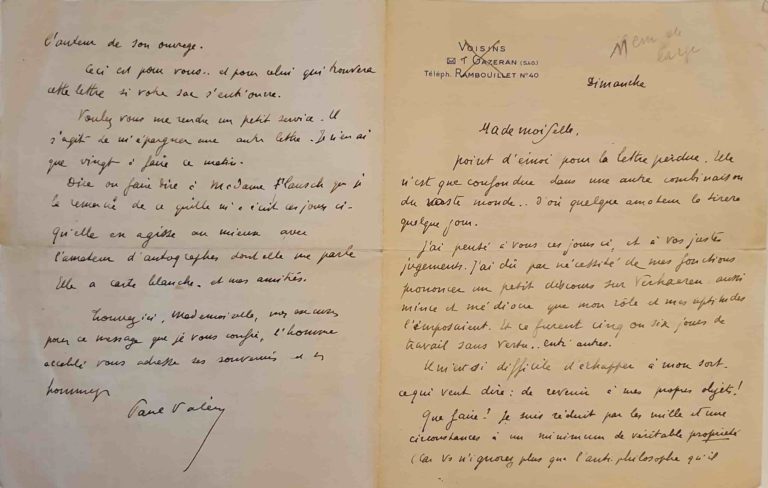 VOISINS
GAZERAN (S&O)
Téléph. RAMBOUILLET N° 40
Dimanche
Mademoiselle,
point d'émoi pour la lettre perdue. Elle
n'est que confondue dans une autre combinaison
du vaste monde.. D'où quelque amateur la tirera
quelque jour.
J'ai pensé à vous ces jours ci, et à vos justes
jugements. J'ai dû par nécessité de mes fonctions
prononcer un petit discours sur Verhaeren aussi
mince et médiocre que mon rôle et mes aptitudes
l'imposaient. Et ce furent cinq ou six jours de
travail sans vertu.. entr'autres.
Il m'est si difficile d'échapper à mon sort.
ce qui veut dire: de revenir à mes propres objets!
Que faire! Je suis réduit par les mille et une
circonstances à un minimum de véritable propriété
(Car Vs n'ignorez plus que l'anti-philosophe qu'il
l'auteur de son ouvrage.
Ceci est pour vous.. et pour celui qui trouvera
cette lettre si votre sac s'entr'ouvre.
Voulez vous me rendre un petit service. Il
s'agit de m'épargner une autre lettre. Je n'en ai
que vingt à faire ce matin.
Dire ou faire dire à Madame que je
la remercie de ce qu'elle m'a écrit ces jours ci-
qu'elle en agisse au mieux avec
l'amateur d'autographes dont elle me parle
Elle a carte blanche - et mes amitiés.
Trouvez ici, Mademoiselle, mes excuses
pour ce message que je vous confie, l'homme
accablé vous adresse ses souvenirs et ses
hommages
Paul Valéry